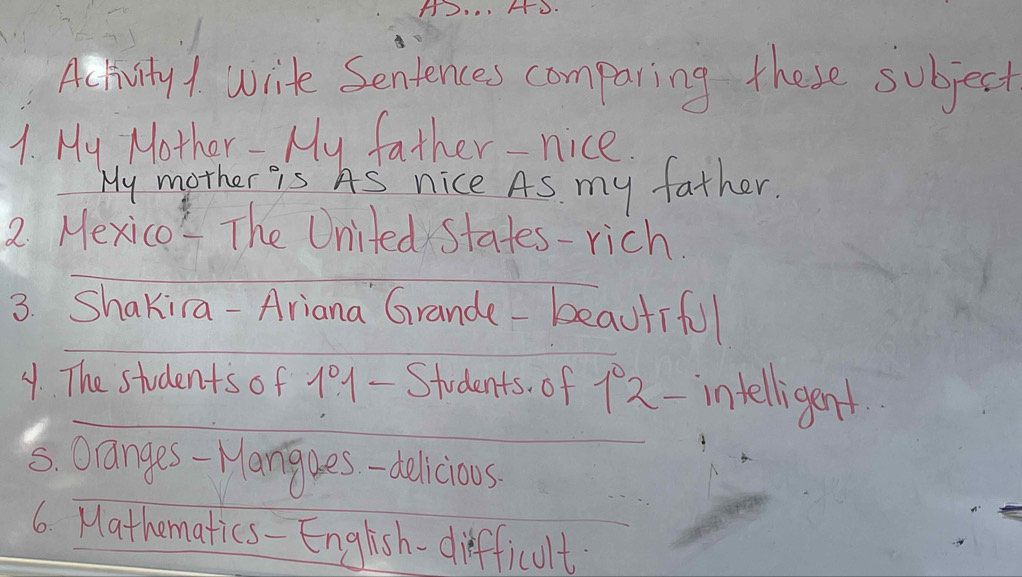 AS... AS.
Activity 1. Write Sentences comparing these subject
1. My Mother - My father - nice.
My mother is AS nice AS my father.
2. Mexico - The United States - rich.
3. Shakira - Ariana Grande - beautiful
4. The students of 1°1 - Students. of 1°2 - intelligent..
5. Oranges - Mangoes. - delicious.
6. Mathematics - English - difficult.